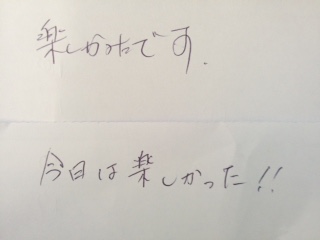 楽しかったです.
今日は楽しかった!!